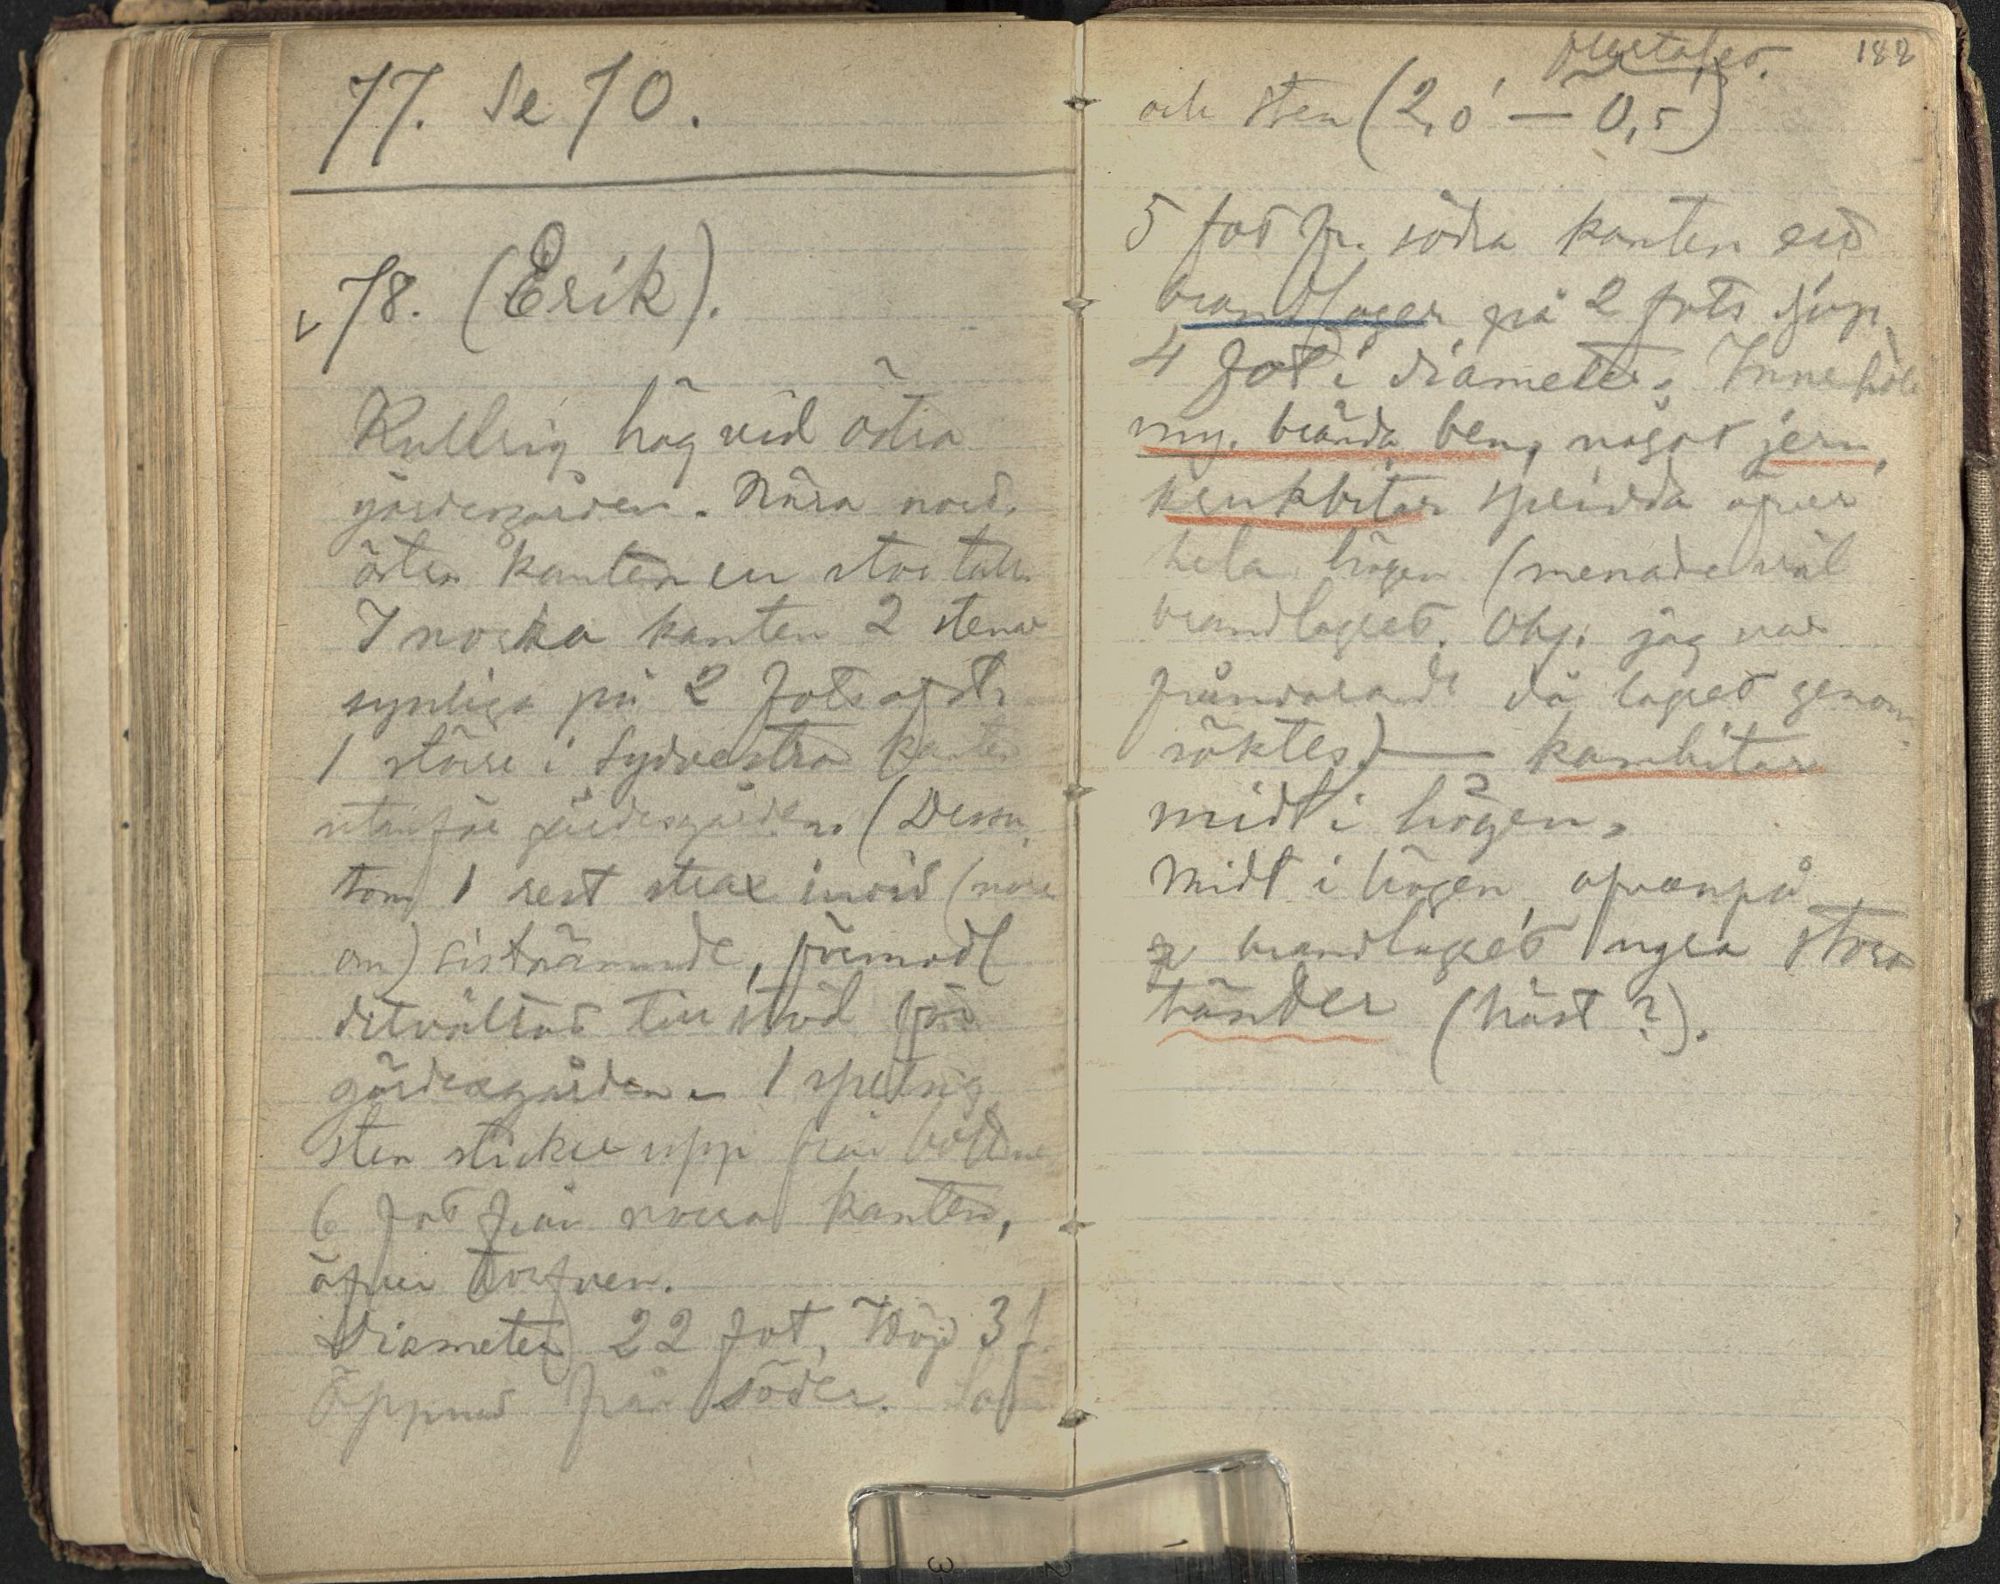 77. Se 70.
78. (Erik).
Kullrig hög vid östra
gärdesgården. Nära nord-
östra kanten en stor tall.
I norra kanten 2 stenar
synliga på 2 fots afst.
1 större i sydvestra kanten
utanför gärdesgården. (Dessu-
tom 1 rest strax invid (norr
om) sistnämnde, förmodl
ditvältad till stöd för
gärdesgården. 1 spetsig
sten sticker upp från bottnen
6 fot från norra kanten,
öfver torfven.
Diameter 22 fot, Höjd 3 f.
Öppnad från söder.
188
och sten (2,0' — 0,5)
5 fot fr. söder kanten ett
brandlager på 2 fots djup,
4 fot i diameter. Innehöll
my. brända ben, något jern,
krukbitar spridda öfver
hela högen (menade väl
brandlagret. Obs. jag var
frånvarande då lagret genom-
söktes.) — kambitar
midt i högen.
Midt i högen ofvanpå
brandlagret några stora
tänder (häst ?).